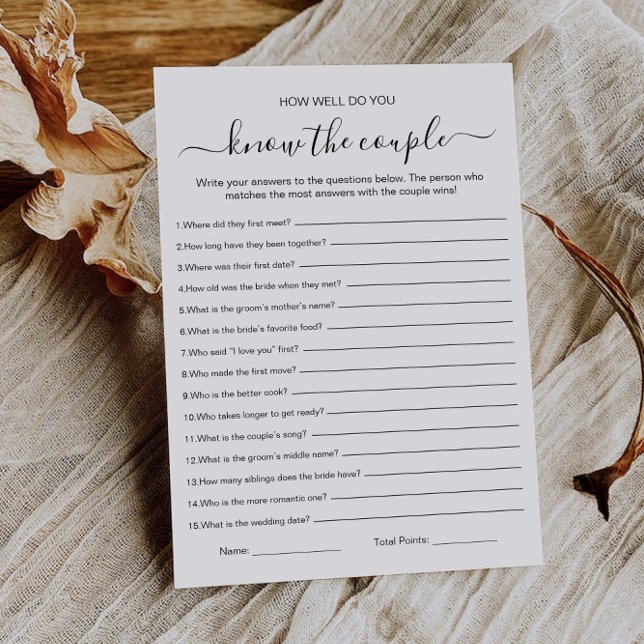 HOW WELL DO YOU
know the couple
Write your answers to the questions below. The person who
matches the most answers with the couple wins!
1.Where did they first meet?
2.How long have they been together?
3.Where was their first date?
4.How old was the bride when they met?
5.What is the groom's mother's name?
6.What is the bride's favorite food?
7.Who said "I love you" first?
8.Who made the first move?
9.Who is the better cook?
10.Who takes longer to get ready?
11.What is the couple's song?
12.What is the groom's middle name?
13.How many siblings does the bride have?
14.Who is the more romantic one?
15.What is the wedding date?
Name: ______________ Total Points: ____________